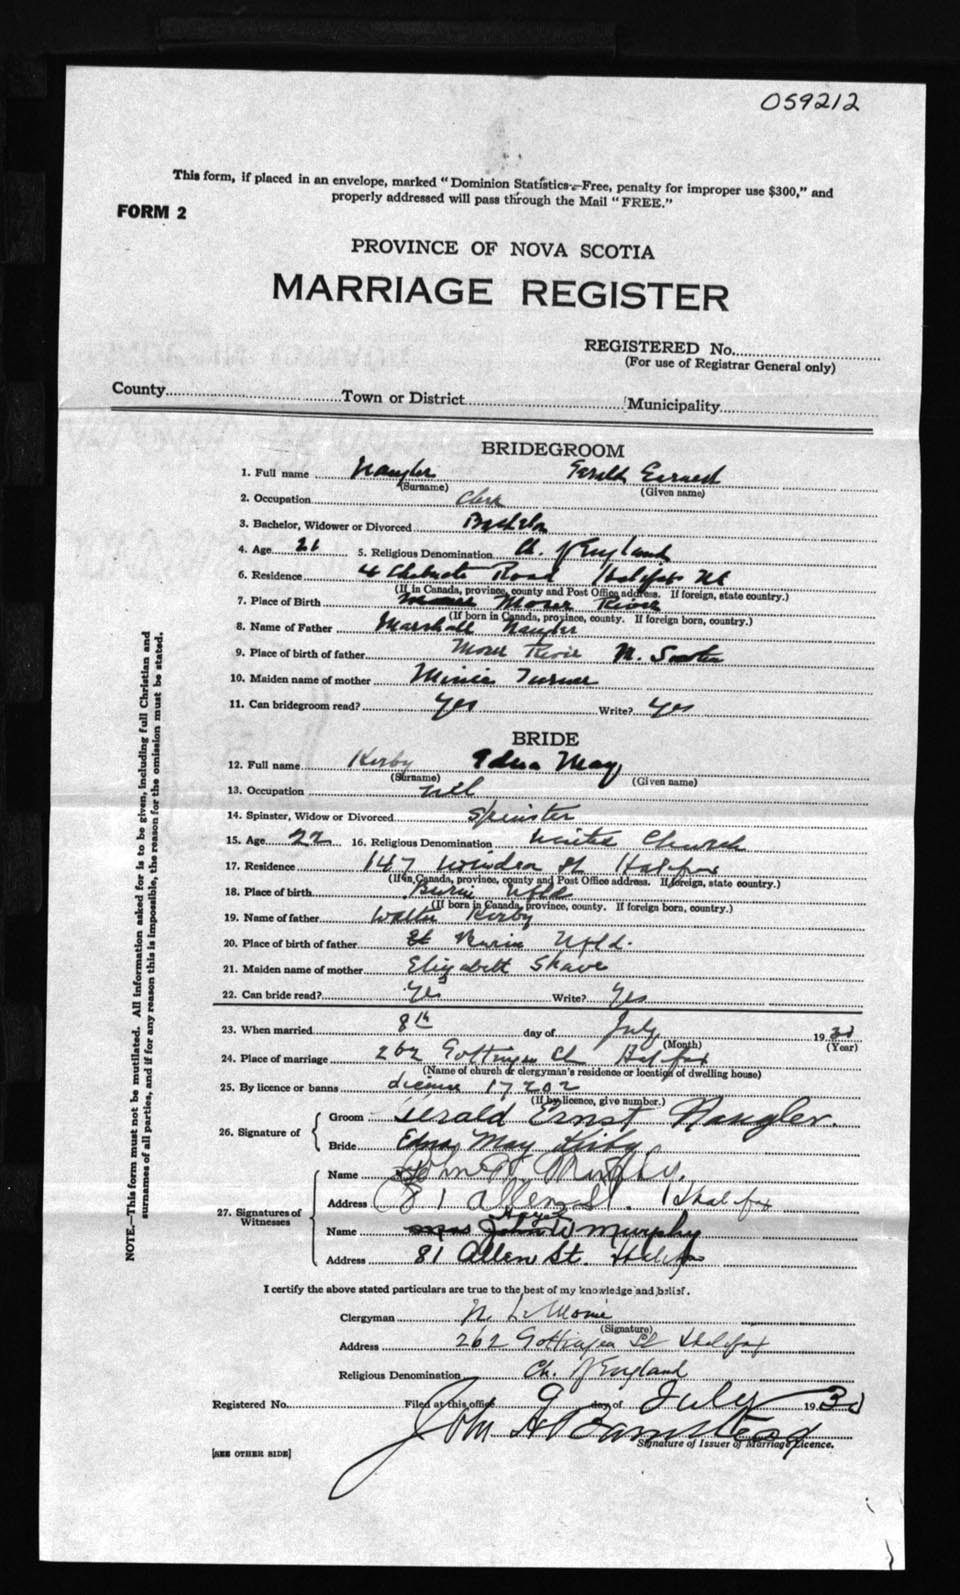 059212
This form, if placed in an envelope, marked "Dominion Statistics—Free, penalty for improper use $300," and
properly addressed will pass through the Mail "FREE."
FORM 2
PROVINCE OF NOVA SCOTIA
MARRIAGE REGISTER
REGISTERED No.
(For use of Registrar General only)
County Town or District Municipality
BRIDEGROOM
1. Full name Naugler Gerald Earnest
(Surname) (Given name)
2. Occupation Clerk
3. Bachelor, Widower or Divorced Bachelor
4. Age 21 5. Religious Denomination Ch. of England
6. Residence 4 Chebucto Road Halifax NS
(If in Canada, province, county and Post Office address. If foreign, state country.)
7. Place of Birth Moser River
(If born in Canada, province, county. If foreign born, country.)
8. Name of Father Marshall Naugler
9. Place of birth of father Moser River N. Scotia
10. Maiden name of mother Minie Turner
11. Can bridegroom read? Yes Write? Yes
BRIDE
12. Full name Kirby Edna May
(Surname) (Given name)
13. Occupation nil
14. Spinster, Widow or Divorced Spinster
15. Age 22 16. Religious Denomination United Church
17. Residence 147 Windsor St Halifax
(If in Canada, province, county and Post Office address. If foreign, state country.)
18. Place of birth Burin Nfld
(If born in Canada, province, county. If foreign born, country.)
19. Name of father Walter Kirby
20. Place of birth of father Burin Nfld.
21. Maiden name of mother Elizabeth Shave
22. Can bride read? Yes Write? Yes
23. When married 8th day of July 1930
(Month) (Year)
24. Place of marriage 262 Gottingen St Halifax
(Name of church or clergyman's residence or location of dwelling house)
25. By licence or banns License 17202
(If by licence, give number.)
26. Signature of Groom Gerald Ernst Naugler.
Bride Edna May Kirby
27. Signatures of Witnesses
Name John W Murphy.
Address 81 Allen St. Halifax
Name Mrs John W Murphy
Address 81 Allen St. Halifax
I certify the above stated particulars are true to the best of my knowledge and belief.
Clergyman N. LeMoine
(Signature)
Address 262 Gottingen St Halifax
Religious Denomination Ch. of England
Registered No. Filed at this office 9 day of July 1930
John H Barnstead
Signature of Issuer of Marriage Licence.
[SEE OTHER SIDE]
NOTE.—This form must not be mutilated. All information asked for is to be given, including full Christian and
surnames of all parties, and if for any reason this is impossible, the reason for the omission must be stated.